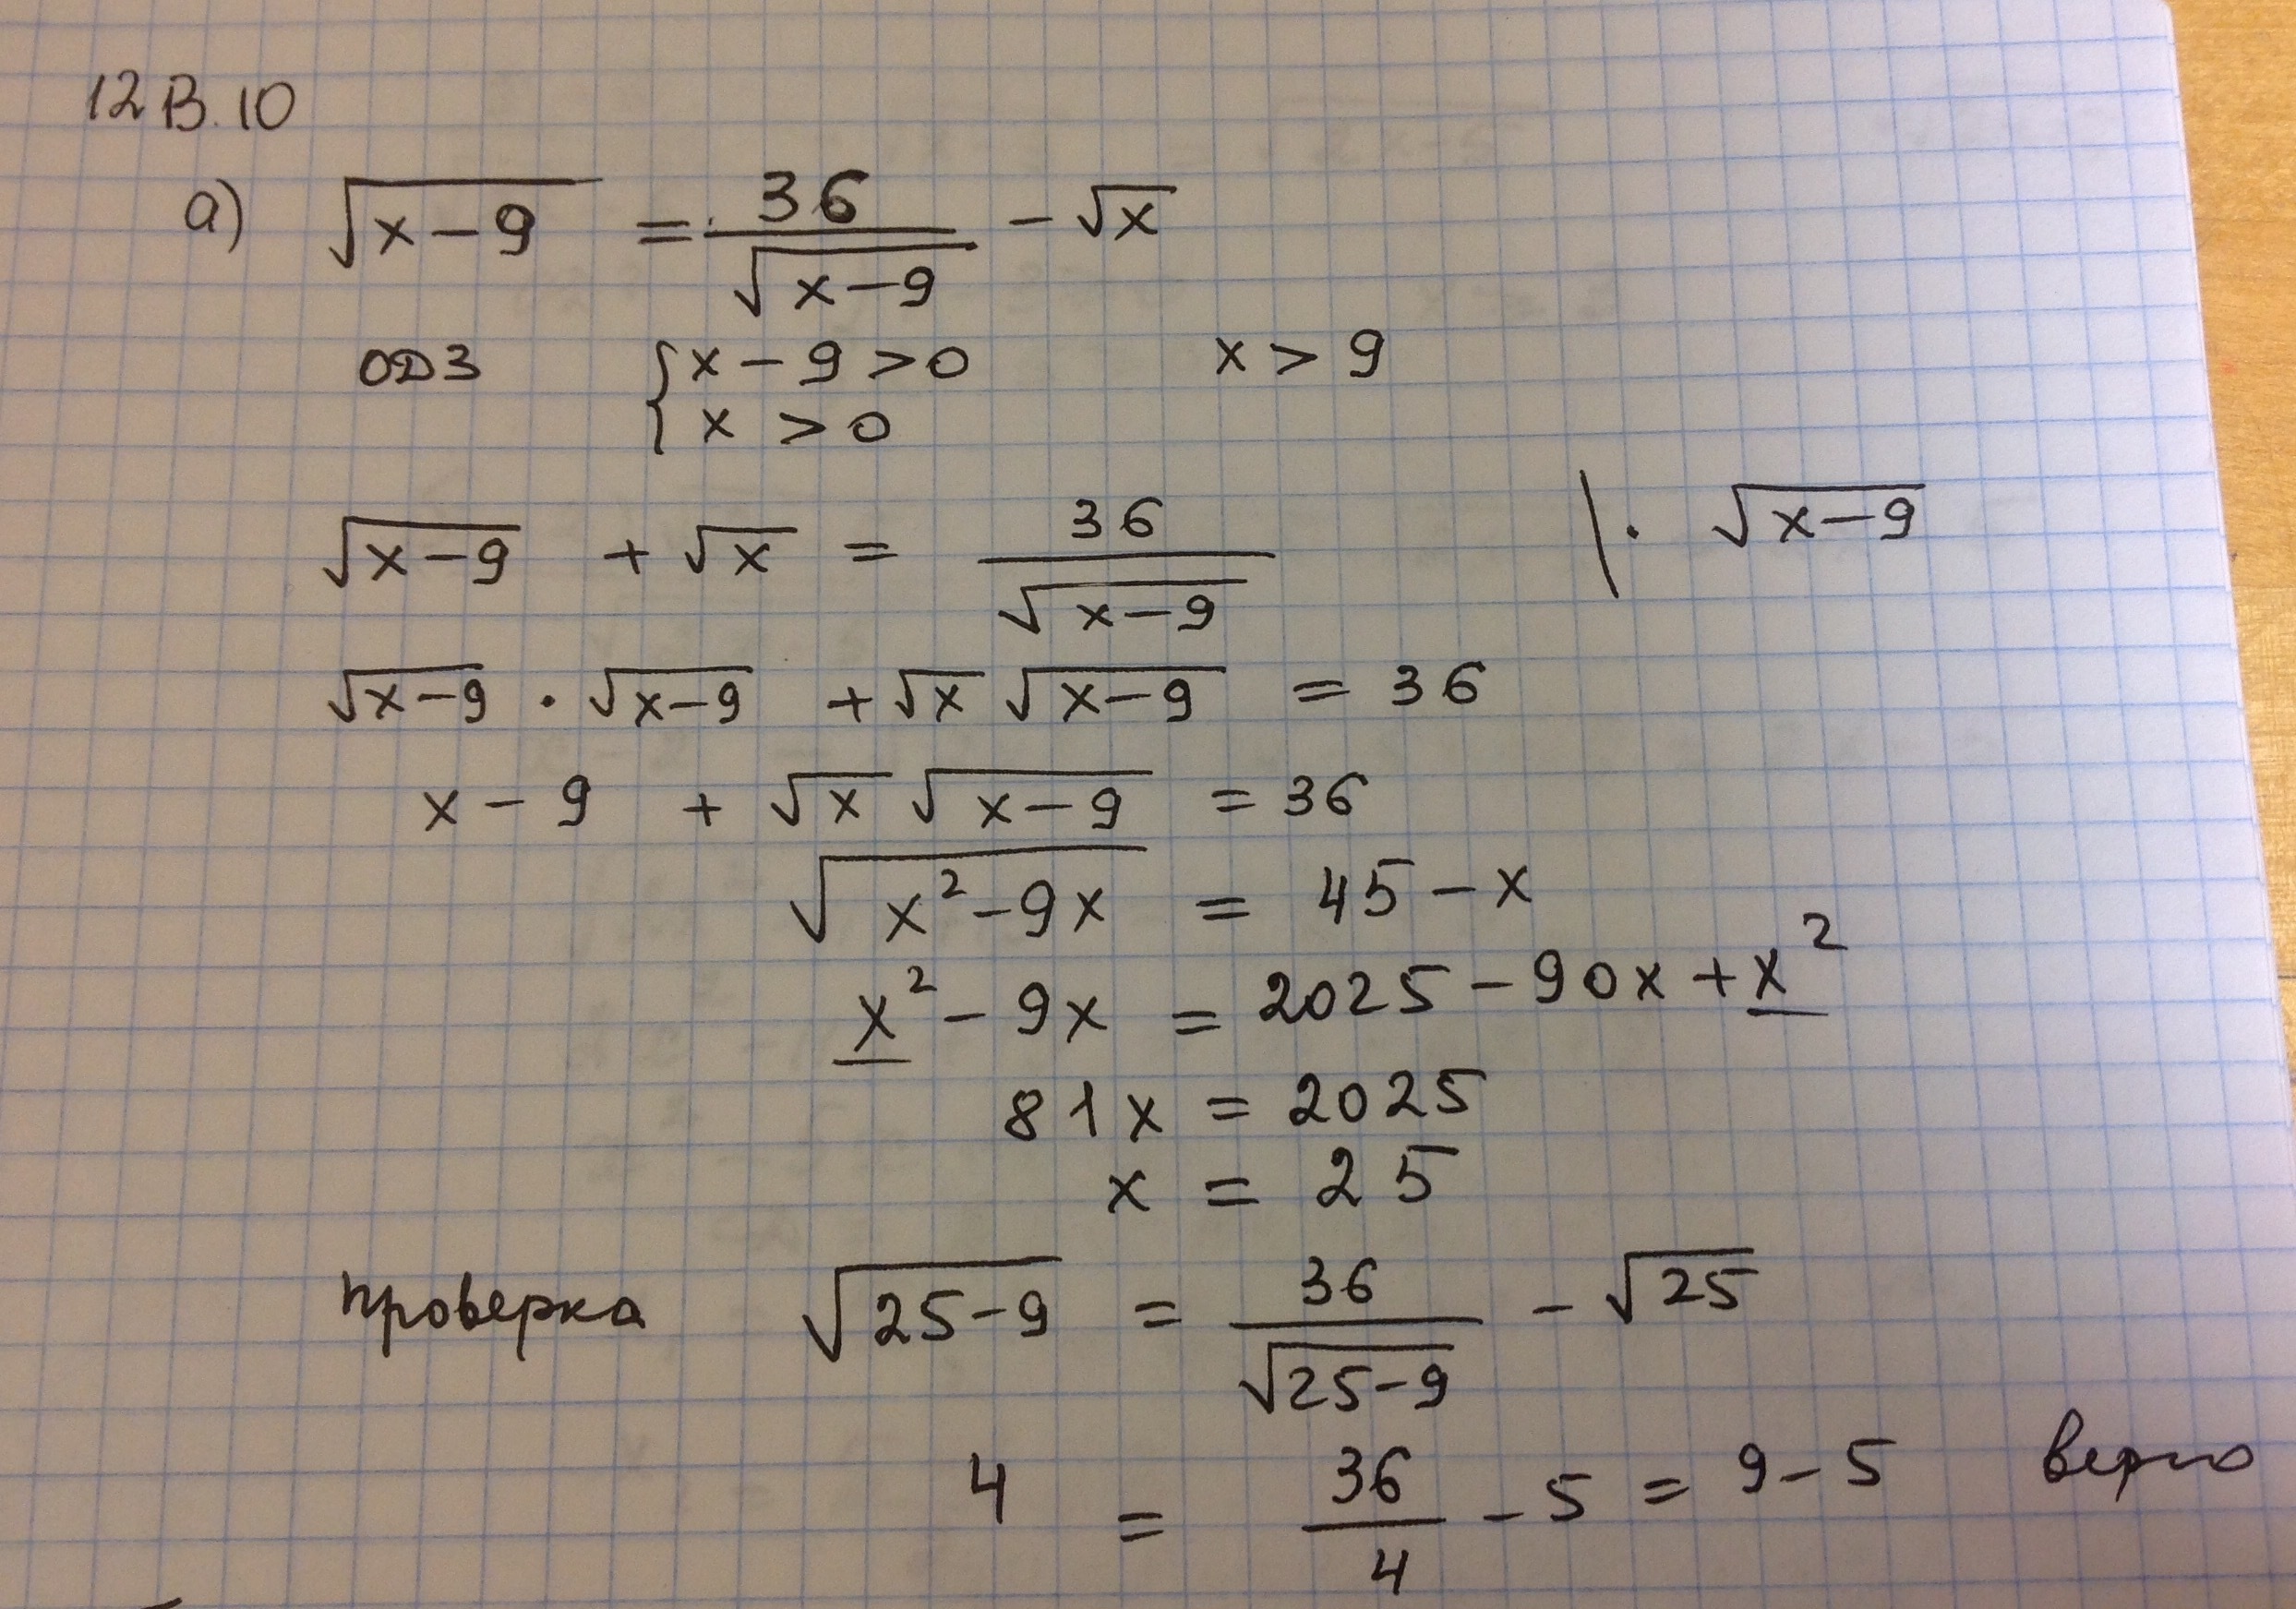 12В.10
а) √(x-9) = 36/√(x-9) - √x
ОДЗ { x - 9 > 0 x > 9
x > 0
√(x-9) + √x = 36/√(x-9) | · √(x-9)
√(x-9) · √(x-9) + √x √(x-9) = 36
x - 9 + √x √(x-9) = 36
√(x²-9x) = 45 - x
x² - 9x = 2025 - 90x + x²
81x = 2025
x = 25
проверка √(25-9) = 36/√(25-9) - √25
4 = 36/4 - 5 = 9 - 5 верно